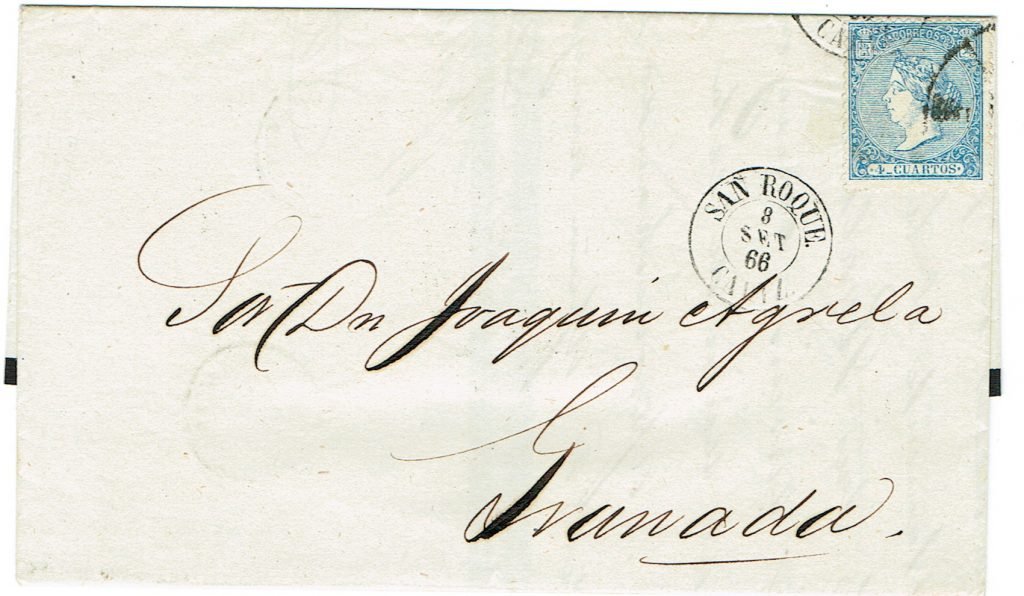 CORREOS
4_CUARTOS
CA
SAN ROQUE.
8
SET
66
Sor Dn Joaquin Agrela
Granada.